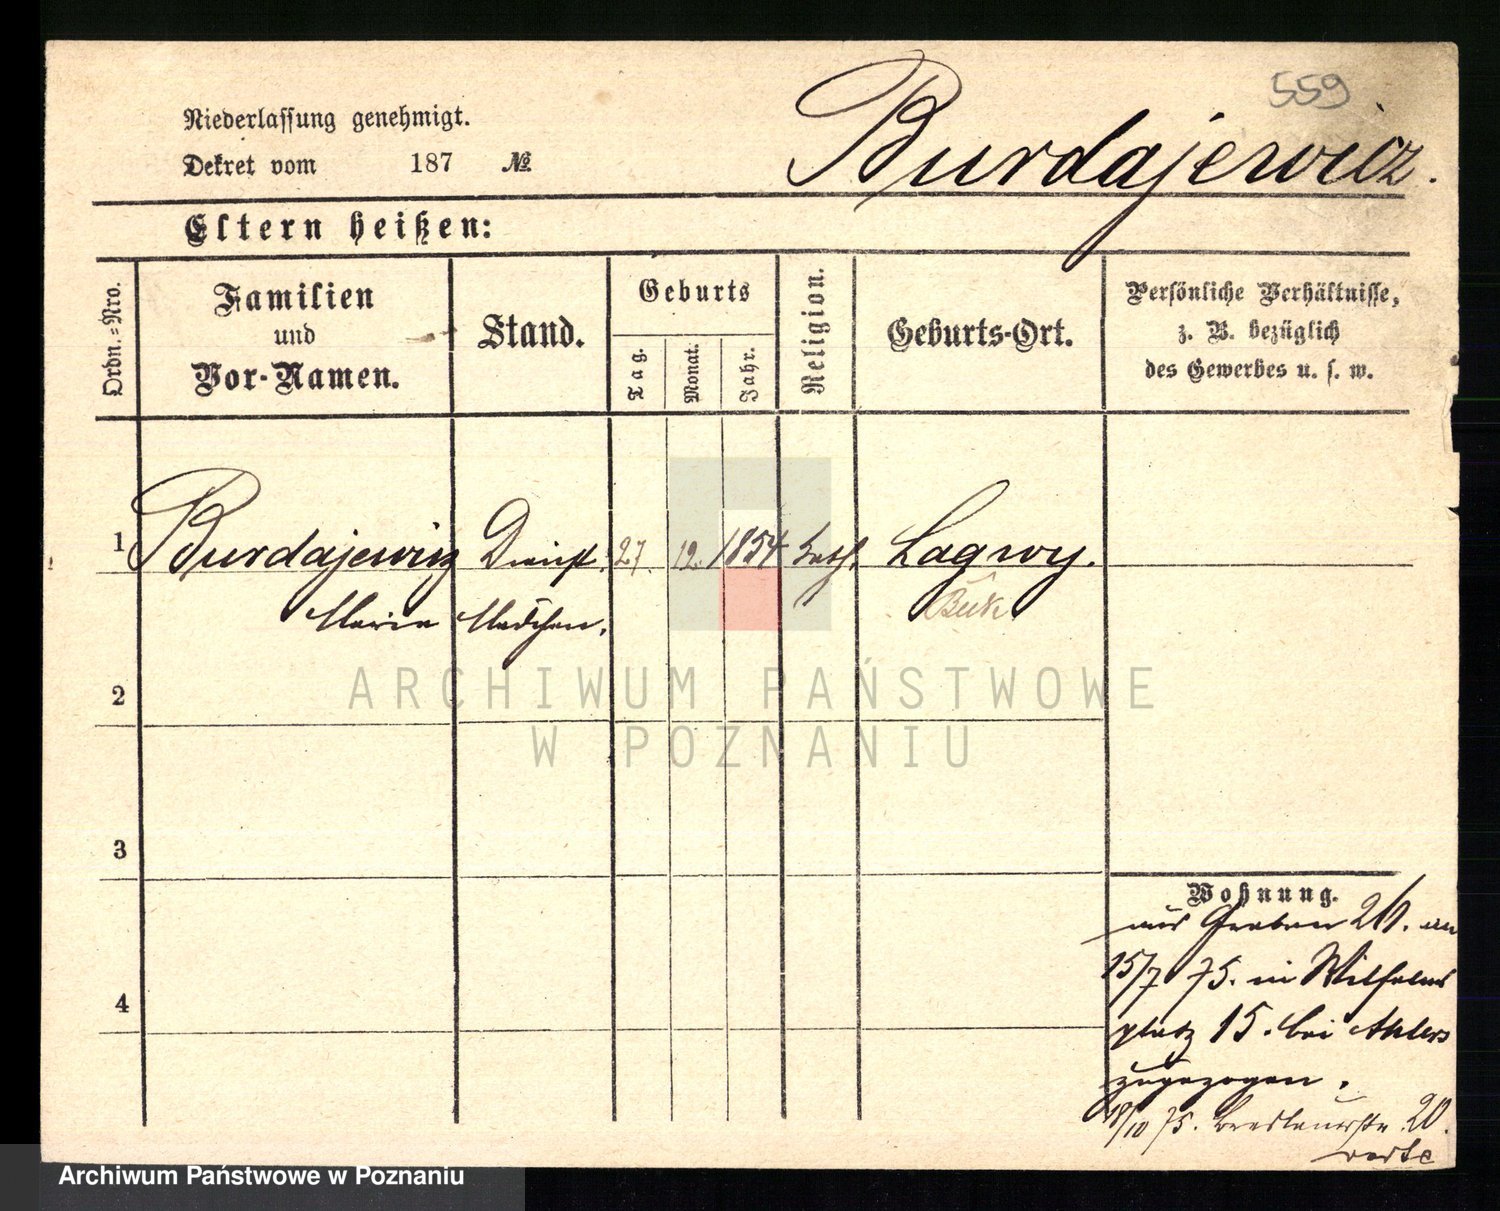 559
Burdajewicz.
Niederlassung genehmigt.
Dekret vom 187 №
Eltern heißen:
Ordn.-Nro.
Familien und Vor-Namen.
Stand.
Geburts
Tag.
Monat.
Jahr.
Religion.
Geburts-Ort.
Persönliche Verhältnisse,
z. B. bezüglich
des Gewerbes u. s. w.
1 Burdajewicz Dienst 27. 12. 1854 kath. Lagwy.
Maria Mädchen. Buk
2
3
4
Wohnung.
aus Graben 26. am
15/7 75. in Wilhelms
platz 15. bei Ahlers
zugezogen.
18/10 75. Breslauerstr. 20.
ARCHIWUM PAŃSTWOWE
W POZNANIU
Archiwum Państwowe w Poznaniu